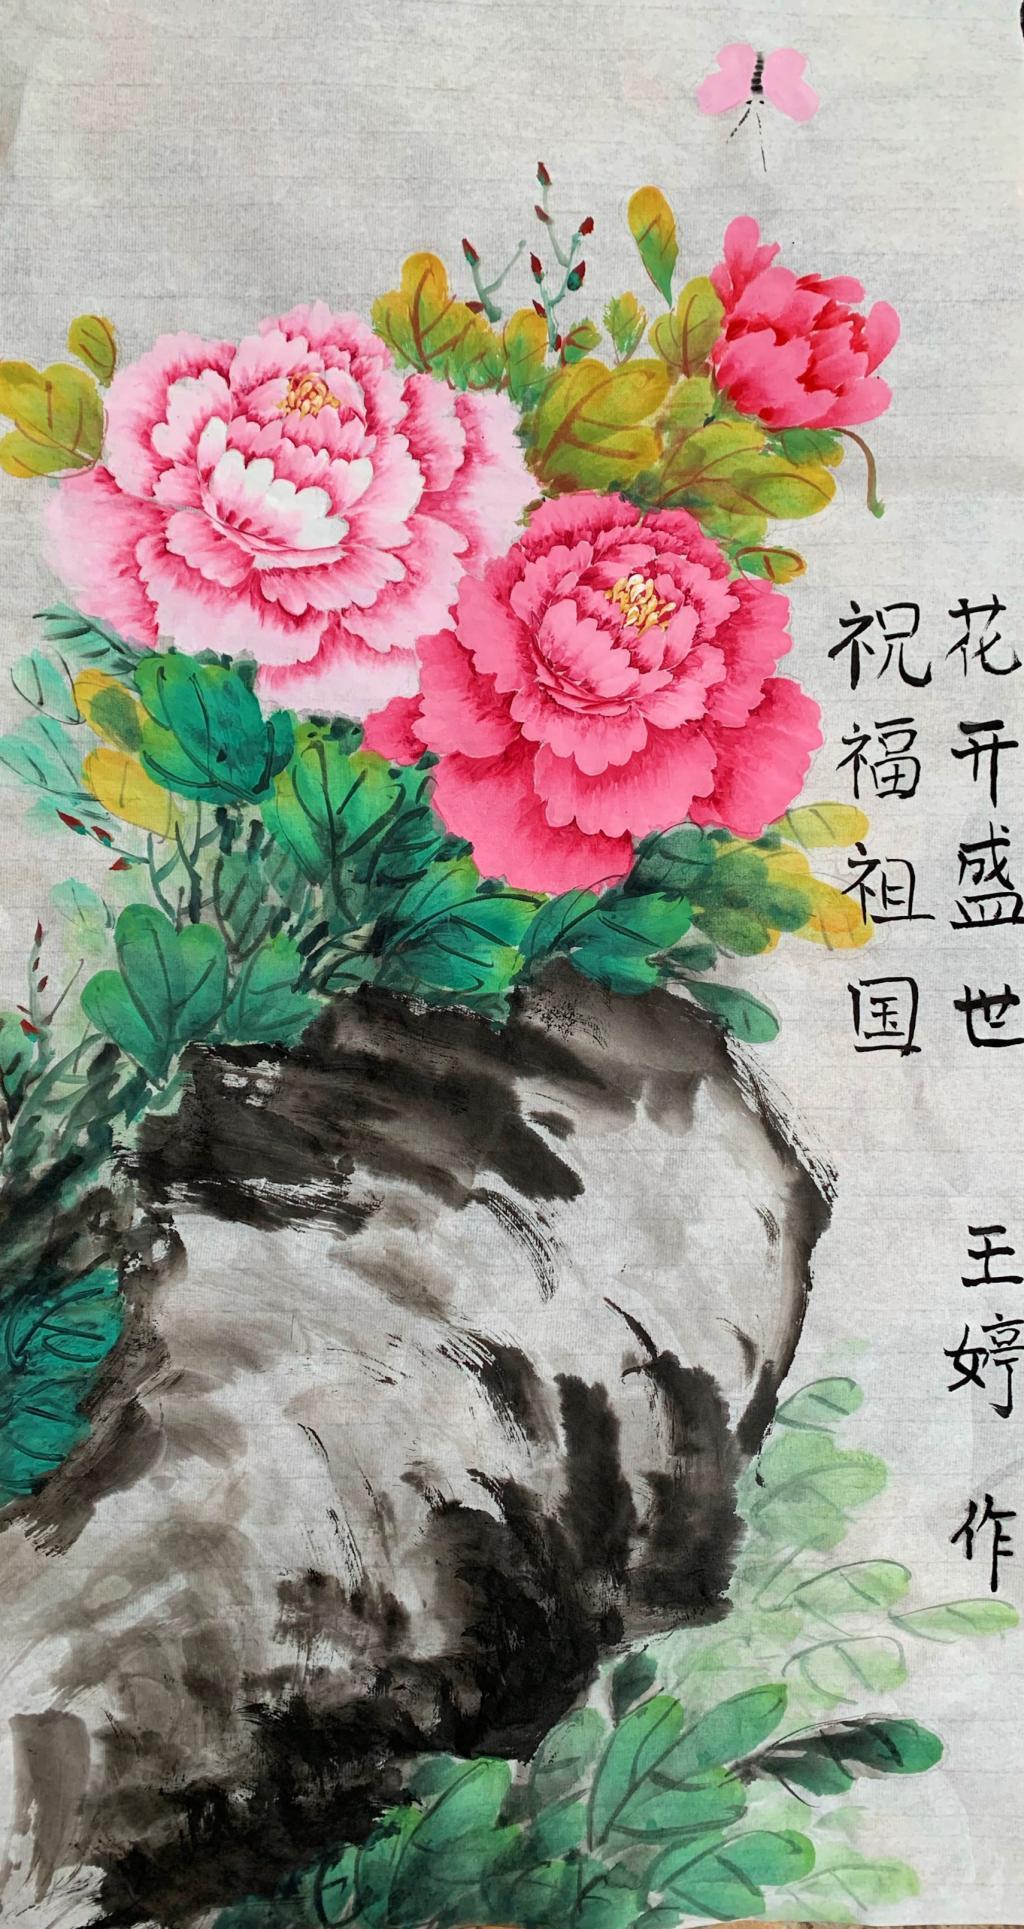 花开盛世
祝福祖国
王婷 作